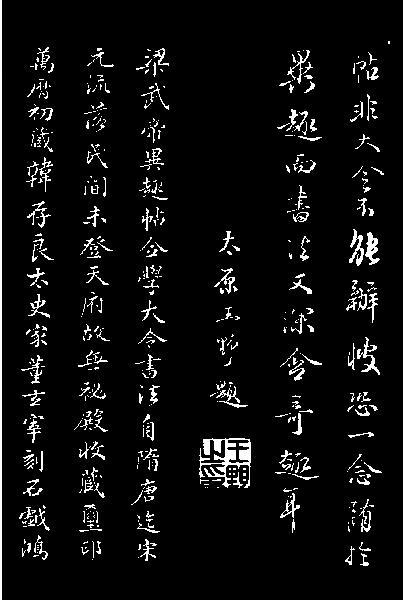 帖非大令不能辦彼恐一念墮於
異趣而書法又深含奇趣耳
太原王野題
王野之印
梁武帝異趣帖全學大令書法自隋唐迄宋
元流落民間未登天府故無祕殿收藏璽印
萬曆初藏韓存良太史家董玄宰刻石戲鴻